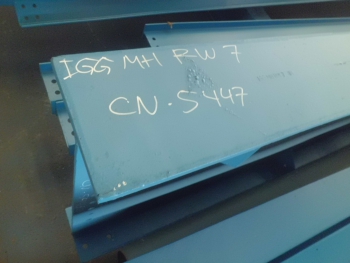 IGG MH RW 7
CN.S447